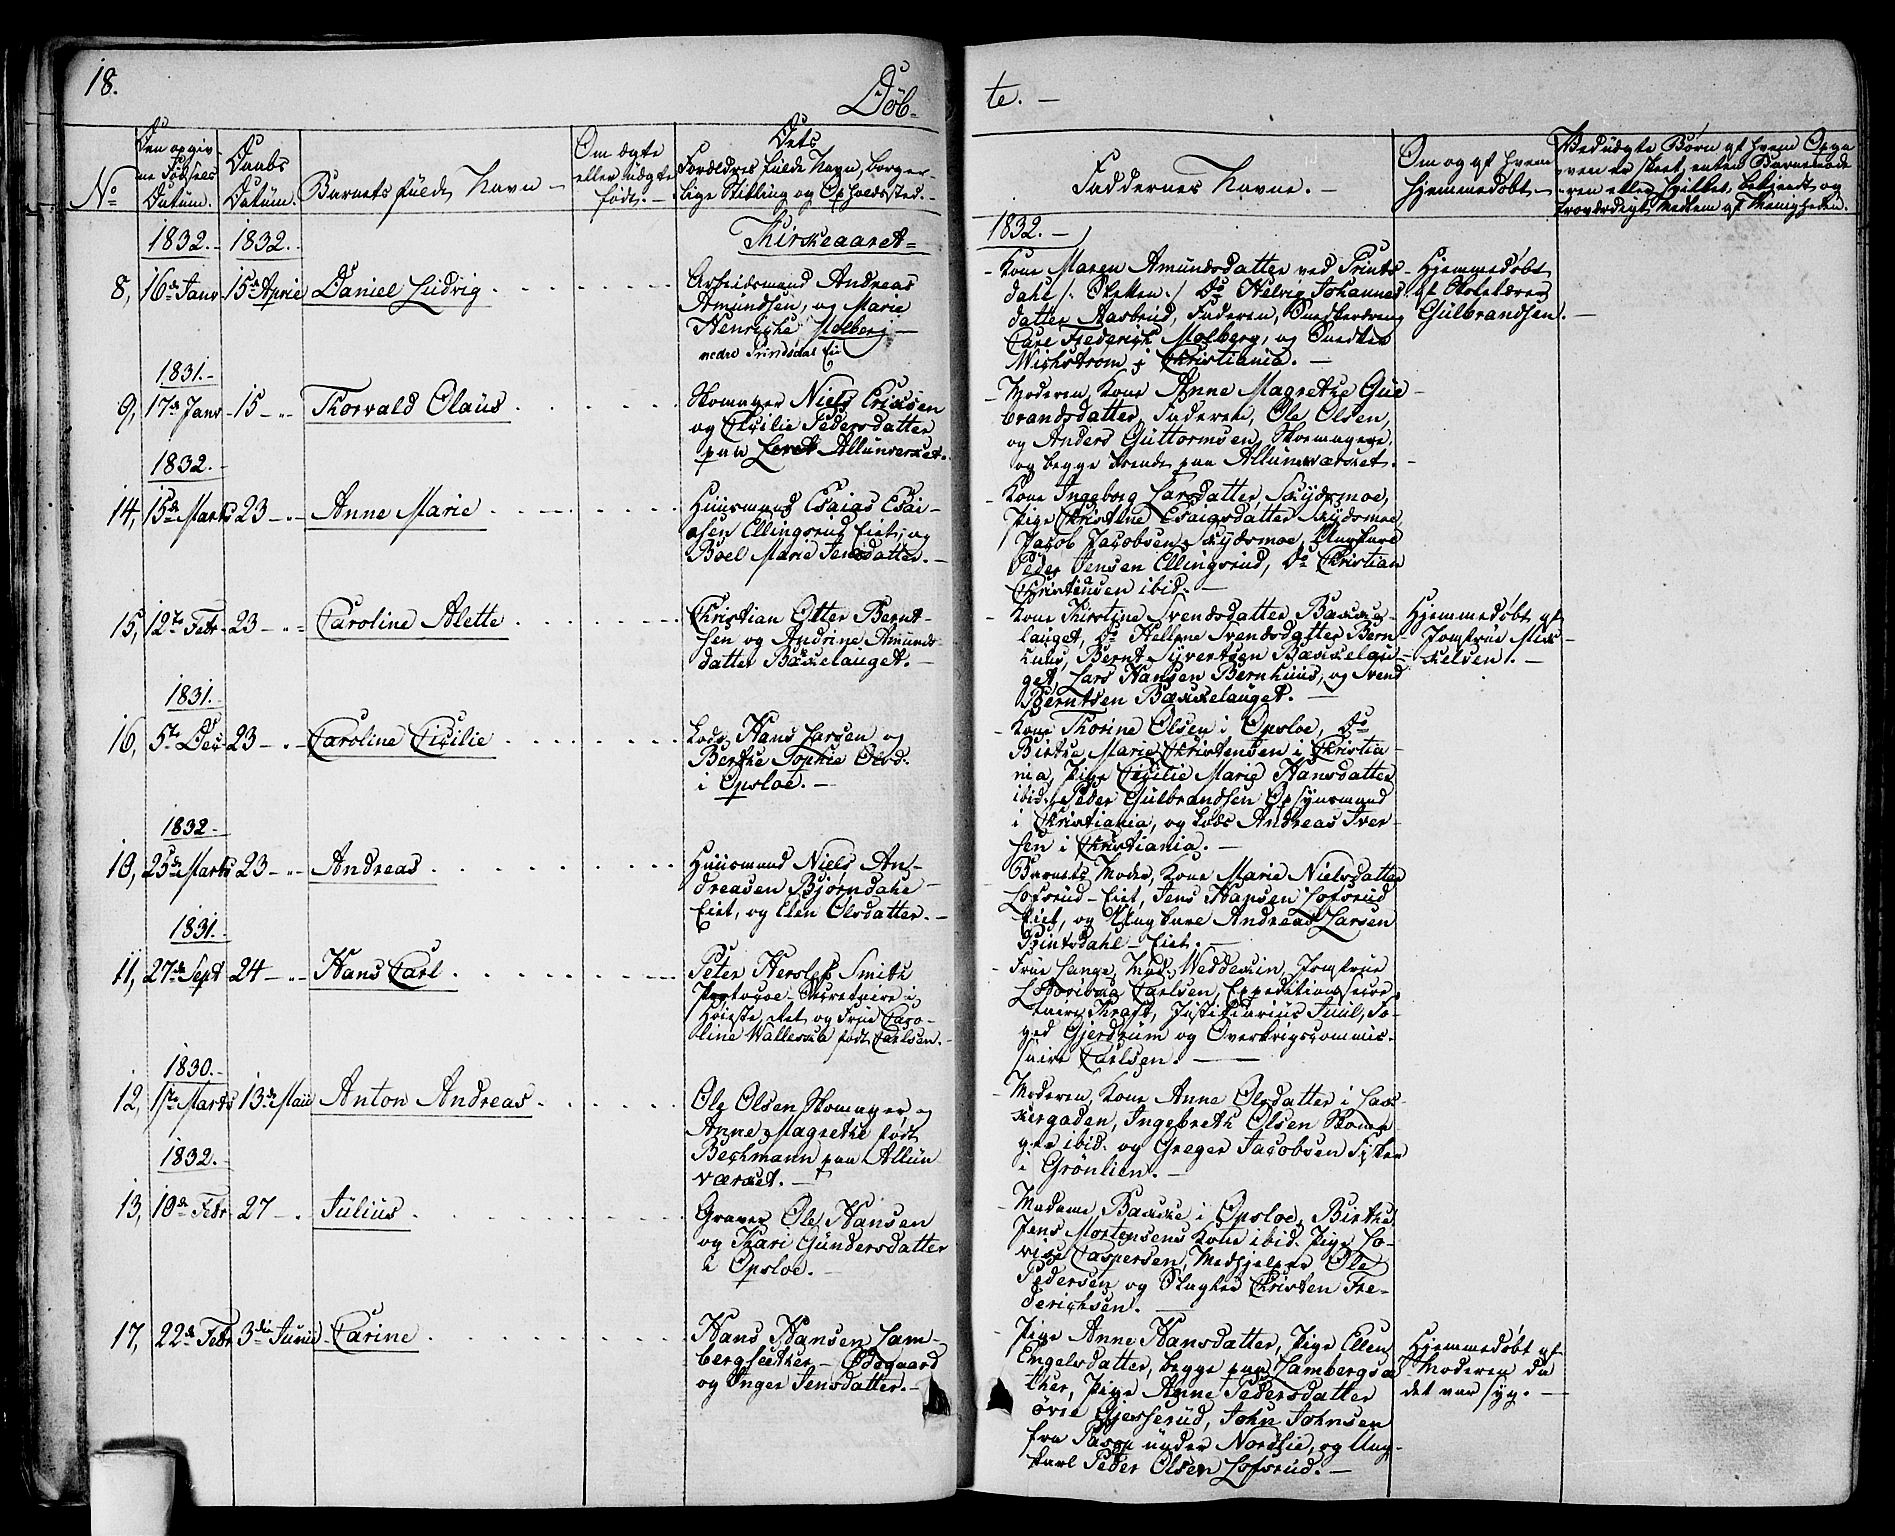 18.
Döb-
te. –
No
Den opgiv-
ne Födsels
Datum.
Daabs
Datum.
Barnets fulde Navn –
Om ægte
eller uægte
født. –
Dets
Forældres fulde Navn, borger-
lige Stilling og Opholdssted. –
Faddernes Navne. –
Om og af hvem
hjemmedøbt –
Ved uægte Börn af hvem Opga-
ven er skeet, enten Barnemode-
ren eller hvilket bekjendt og
troværdigt Medlem af Menigheden.
1832. – 1832. –
1832. –
8, 16de Janr 15de April Daniel Ludvig
Arbeidsmand Andreas
Amundsen, og Marie
Henriche Molberg –
nedre Prindsdal Eie
– Kone Maren Amundsdatter ved Prints-
dahl /: Sletten :/ Do Helvig Johannes-
datter Aasbrud, Faderen, Snedkerdreng
Carl Frederich Molberg, og Snedker
Wichstrøm i Christiania. –
– Hjemmedøbt
af Skolelærer
Gulbrandsen. –
1831. –
9, 17de Janr 15 – „ – Thorvald Olaus
Skomager Niels Erichsen
og Cicilie Pedersdatter
paa Leret Allunverket. –
– Moderen, Kone Anne Magrethe Gul-
brandsdatter, Faderen, Ole Olsen,
og Anders Guttormsen, Skomagere,
og begge boende paa Allunværket. –
1832. –
14, 15de Marts 23 – „ – Anne Marie
Huusmand Esaias Esai-
asen Ellingsrud Eiet, og
Boel Marie Jensdatter. –
– Kone Ingeborg Larsdatter, Skydsmoe,
Pige Christine Esaiasdatter Skydsmoe,
Jacob Jacobsen Skydsmoe, Ungkarl
Peder Jensen Ellingsrud, Do Christian
Christensen ibid. –
15, 12te Febr 23 – „ – Caroline Alette
Christian Otter Bernt-
sen og Andrine Amunds-
datter Bækkelauget. –
– Kone Thirstine Svendsdatter Bække-
lauget, Do Hellene Svendsdatter Bern-
huus, Bernt Syvertsen Bækkelau-
get, Lars Hansen Bernhuus, og Svend
Berntsen Bækkelauget. –
Hjemmedøbt af
Jomfrue Mik-
kelsen. –
1831. –
16, 5te Dec 23 – „ – Caroline Cicilie
Lods Hans Larsen og
Berthe Sophie Olsd.
i Opsloe. –
– Kone Thorine Olsen i Opsloe, Do
Birthe Marie Christensen i Christia-
nia, Pige Cicilie Marie Hansdatter
ibid., Peder Gulbrandsen Opsynsmand
i Christiania, og Lods Andreas Iver-
sen i Christiania. –
1832 –
10, 25de Marts 23 – „ – Andreas
Huusmand Niels An-
dreasen Bjørndahl –
Eiet, og Elen Olsdatter. –
– Barnets Moder, Kone Marie Nielsdatter
Lofsrud – Eiet, Jens Hansen Lofsrud
Eiet, og Ungkarl Andreas Larsen
Printsdahl – Eiet. –
1831. –
11, 27de Sept 24 – „ – Hans Carl
Peter Hersleb Smith
Protocol-Secretaire i
Høieste Ret og Frue Caro-
line Walleska født Carlsen. –
– Frue Lange, Mad. Weddekin, Jomfrue
Carlsen, Expeditionssecre-
tair Kraft, Justitiarius Juul, Fo-
ged Gjerdrum og Overkrigscommis-
saire Carlsen. –
1830. –
12, 1ste Marts 13de Maii Anton Andreas
Ole Olsen Skomager, og
Anne Magrethe født
Bechmann paa Allun-
værket. –
– Moderen, Kone Anne Olsdatter i Lak-
kergaden, Ingebreth Olsen Skoma-
ger ibid. og Greger Jacobsen Fisker
i Grønlien. –
1832. –
13, 10de Febr 27 – „ Julius
Graver Ole Hansen
og Kari Gundersdatter
i Opsloe. –
– Madame Bakke i Opsloe, Birthe
Jens Mortensens Kone ibid. Pige Lo-
vise Caspersen, Medhjelper Ole
Pedersen og Slagter Christen Fre-
derichsen. –
17, 22de Febr 3die Junie Carine
Hans Hansen Lam-
bergsæther – Ødegaard
og Inger Jensdatter. –
– Pige Anne Hansdatter, Pige Ellen
Engelsdatter, begge paa Lambergsæ-
ther, Pige Anne Pedersdatter
øvre Gjesserud, John Johnsen
fra under Nordlie, og Ung-
karl Peder Olsen Lofsrud. –
Hjemmedøbt af
Moderen da
det var syg. –